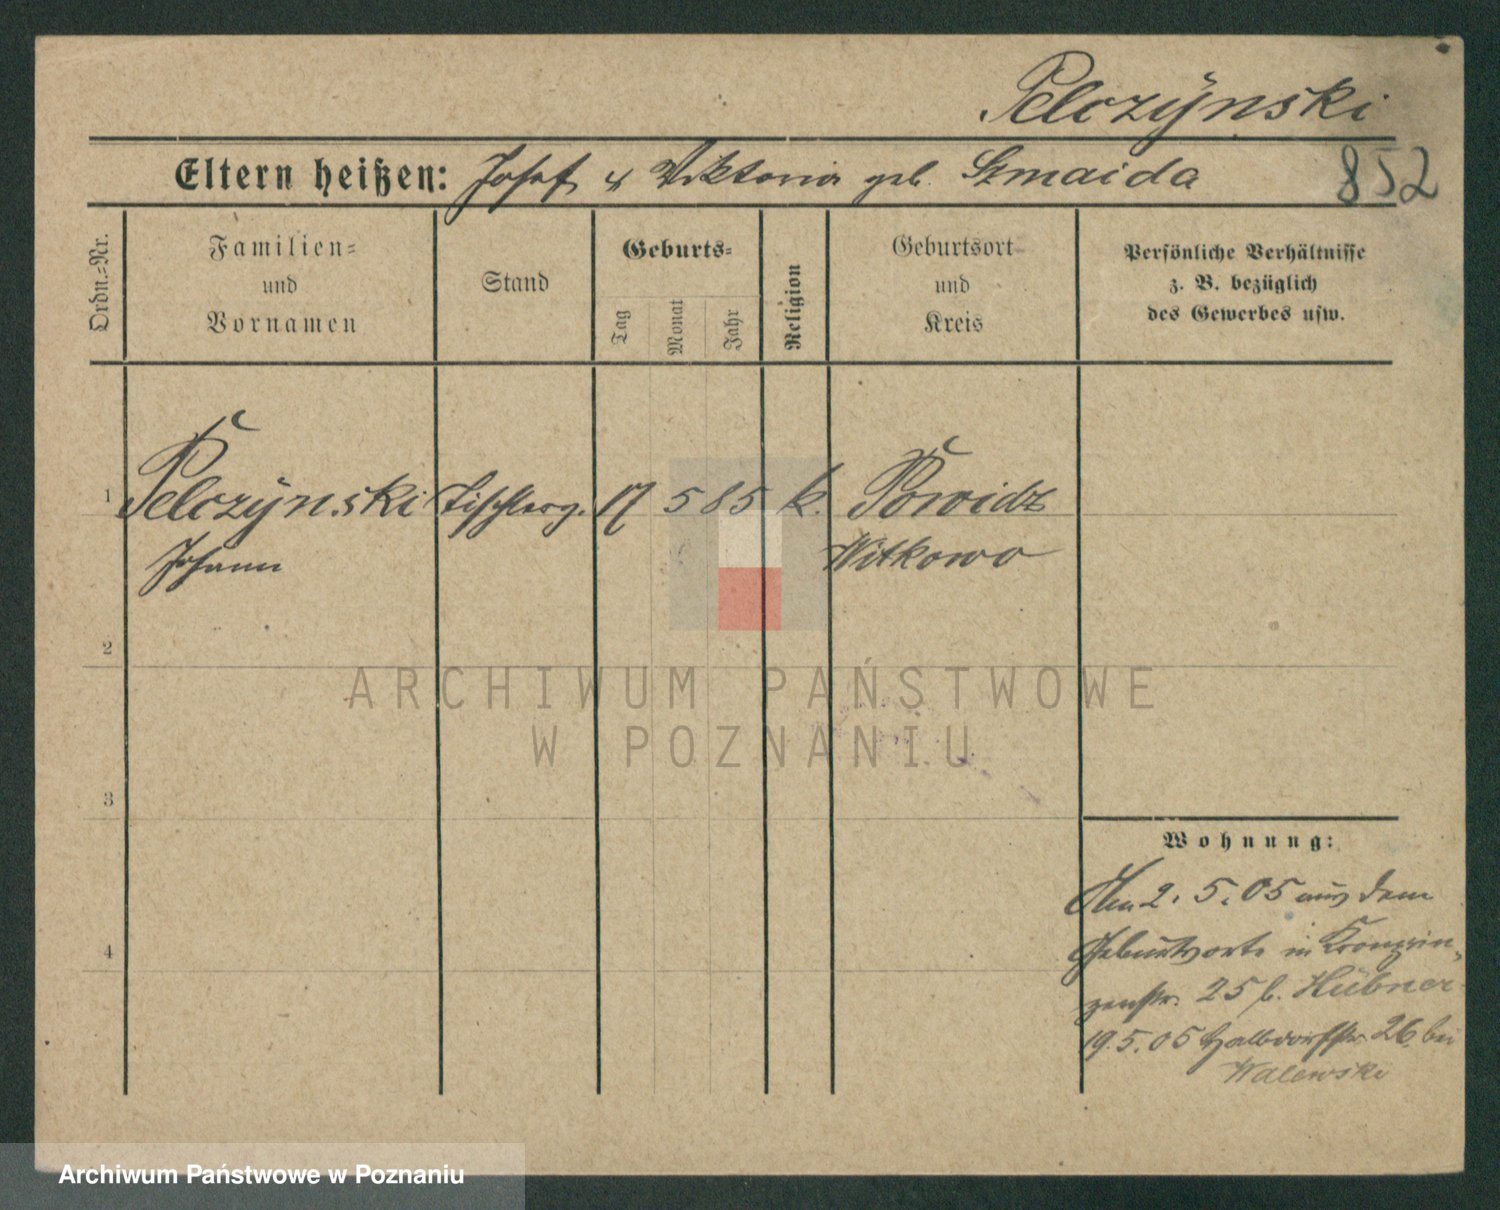 Pelczynski
Eltern heißen: Josef u Viktoria geb. Szmaida
852
Ordn.=Nr.
Familien=
und
Vornamen
Stand
Geburts=
Tag
Monat
Jahr
Religion
Geburtsort
und
Kreis
Persönliche Verhältnisse
z. B. bezüglich
des Gewerbes usw.
1 Pelczynski Tischlerg. 17 5 85 k. Powidz
Johann Witkowo
2
3
4
ARCHIWUM PAŃSTWOWE
W POZNANIU
Wohnung:
Am 2. 5. 05 aus dem
Geburtsorte in Kronprin-
zenstr. 25 b. Hübner
19.5.05 Halbdorfstr. 26 bei
Walewski
Archiwum Państwowe w Poznaniu